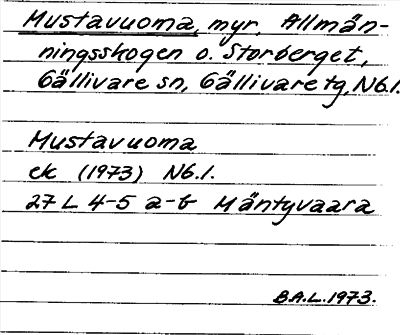 Mustavuoma, myr, Allmän-
ningsskogen o. Storberget,
Gällivare sn, Gällivare tg, Nb.l.
Mustavuoma
ek (1973) Nb.l.
27 L 4-5 a-b Mäntyvaara
B.A.L. 1973.